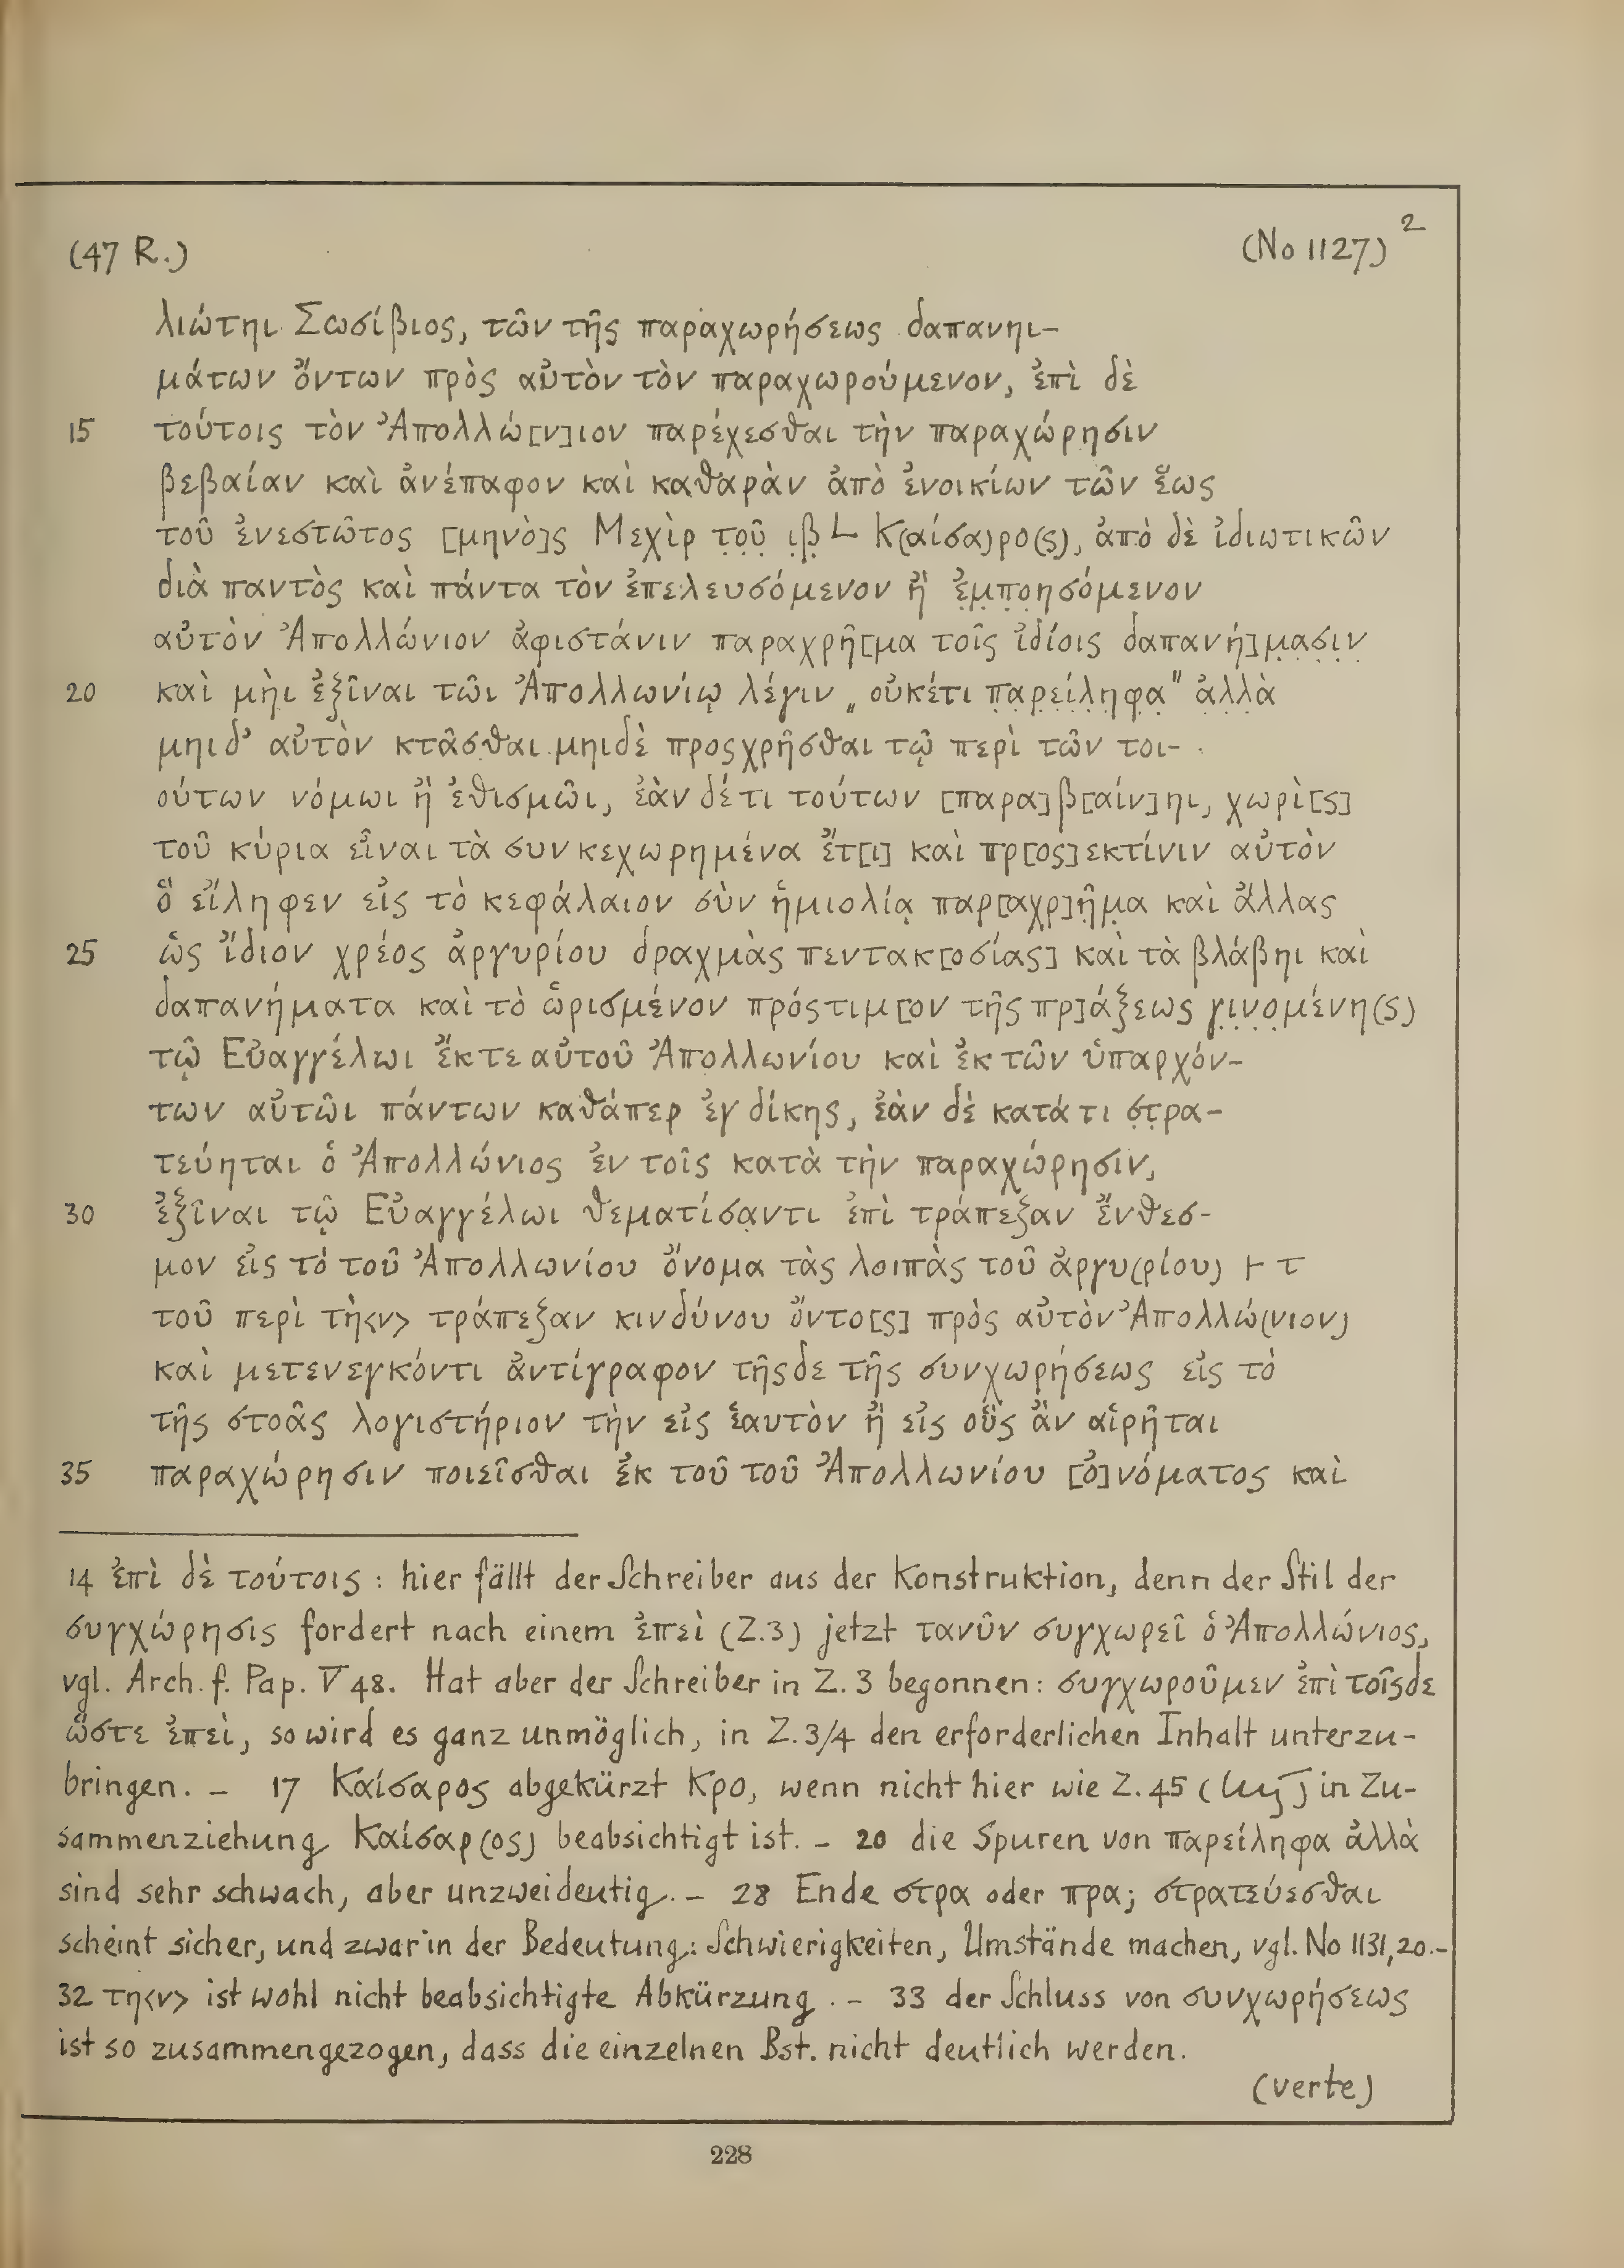 (47 R.) (No 1127) 2
λιώτηι Σωσίβιος, τῶν τῆς παραχωρήσεως δαπανηι-
μάτων ὄντων πρὸς αὐτὸν τὸν παραχωρούμενον, ἐπὶ δὲ
15 τούτοις τὸν Ἀπολλώ[ν]ιον παρέχεσθαι τὴν παραχώρησιν
βεβαίαν καὶ ἀνέπαφον καὶ καθαρὰν ἀπὸ ἐνοικίων τῶν ἕως
τοῦ ἐνεστῶτος [μηνὸ]ς Μεχὶρ τ̣ο̣ῦ̣ ι̣β̣ L Κ(αίσα)ρο(ς), ἀπὸ δὲ ἰδιωτικῶν
διὰ παντὸς καὶ πάντα τὸν ἐπελευσόμενον ἢ ἐ̣μ̣π̣ο̣ησόμενον
αὐτὸν Ἀπολλώνιον ἀφιστάνιν παραχρῆ[μα τοῖς ἰδίοις δαπανή]μ̣α̣σ̣ι̣ν̣
20 καὶ μὴι ἐξῖναι τῶι Ἀπολλωνίῳ λέγιν „οὐκέτι π̣α̣ρ̣ε̣ί̣λ̣η̣φ̣α̣" ἀ̣λ̣λ̣ὰ
μηιδ' αὐτὸν κτᾶσθαι μηιδὲ προςχρῆσθαι τῷ περὶ τῶν τοι-
ούτων νόμωι ἢ ἐθισμῶι, ἐὰν δέ τι τούτων [παρα]β[αίν]ηι, χωρὶ[ς]
τοῦ κύρια εἶναι τὰ συνκεχωρημένα ἔτ[ι] καὶ πρ[ος]εκτίνιν αὐτὸν
ὃ εἴληφεν εἰς τὸ κεφάλαιον σὺν ἡμιολίᾳ παρ[αχρ]ῆ̣μ̣α καὶ ἄλλας
25 ὡς ἴδιον χρέος ἀργυρίου δραχμὰς πεντακ[οσίας] καὶ τὰ βλάβηι καὶ
δαπανήματα καὶ τὸ ὡρισμένον πρόςτιμ[ον τῆς πρ]άξεως γ̣ι̣ν̣ο̣μένη(ς)
τῷ Εὐαγγέλωι ἔκ τε αὐτοῦ Ἀπολλωνίου καὶ ἐκ τῶν ὑπαρχόν-
των αὐτῶι πάντων καθάπερ ἐγ δίκης, ἐὰν δὲ κατά τι σ̣τ̣ρα-
τεύηται ὁ Ἀπολλώνιος ἐν τοῖς κατὰ τὴν παραχώρησιν,
30 ἐξῖναι τῷ Εὐαγγέλωι θεματίσα̣ντι ἐπὶ τράπεζαν ἔνθεσ-
μον εἰς τὸ τοῦ Ἀπολλωνίου ὄνομα τὰς λοιπὰς τοῦ ἀργυ(ρίου) ⊦ τ
τοῦ περὶ τὴ<ν> τράπεζαν κινδύνου ὄντο[ς] πρὸς αὐτὸν Ἀπολλώ(νιον)
καὶ μετενεγκόντι ἀντίγραφον τῆςδε τῆς συνχωρήσεως εἰς τὸ
τῆς στοᾶς λογιστήριον τὴν εἰς ἑαυτὸν ἢ εἰς οὓς ἂν αἱρῆται
35 παραχώρησιν ποιεῖσθαι ἐκ τοῦ τοῦ Ἀπολλωνίου [ὀ]νόματος καὶ
14 ἐπὶ δὲ τούτοις: hier fällt der Schreiber aus der Konstruktion, denn der Stil der
συγχώρησις fordert nach einem ἐπεὶ (Z.3) jetzt τανῦν συγχωρεῖ ὁ Ἀπολλώνιος,
vgl. Arch. f. Pap. V 48. Hat aber der Schreiber in Z. 3 begonnen: συγχωροῦμεν ἐπὶ τοῖςδε
ὥστε ἐπεὶ, so wird es ganz unmöglich, in Z. 3/4 den erforderlichen Inhalt unterzu-
bringen. – 17 Καίσαρος abgekürzt Κρο, wenn nicht hier wie Z. 45 in Zu-
sammenziehung Καίσαρ(ος) beabsichtigt ist. – 20 die Spuren von παρείληφα ἀλλὰ
sind sehr schwach, aber unzweideutig. – 28 Ende στρα oder πρα; στρατεύεσθαι
scheint sicher, und zwar in der Bedeutung: Schwierigkeiten, Umstände machen, vgl. No 1131,20.–
32 τη<ν> ist wohl nicht beabsichtigte Abkürzung. – 33 der Schluss von συνχωρήσεως
ist so zusammengezogen, dass die einzelnen Bst. nicht deutlich werden.
(verte)
228